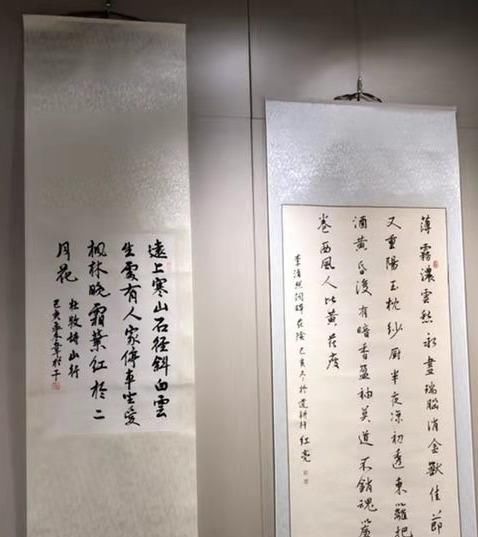 遠上寒山石徑斜白雲
生處有人家停車坐愛
楓林晚霜葉紅於二
月花
杜牧詩山行
己亥
薄霧濃雲愁永晝瑞腦消金獸佳節
又重陽玉枕紗厨半夜涼初透東籬把
酒黃昏後有暗香盈袖莫道不銷魂簾
卷西風人比黃花瘦
李清照詞醉花陰 己亥冬於 耕村 红亮